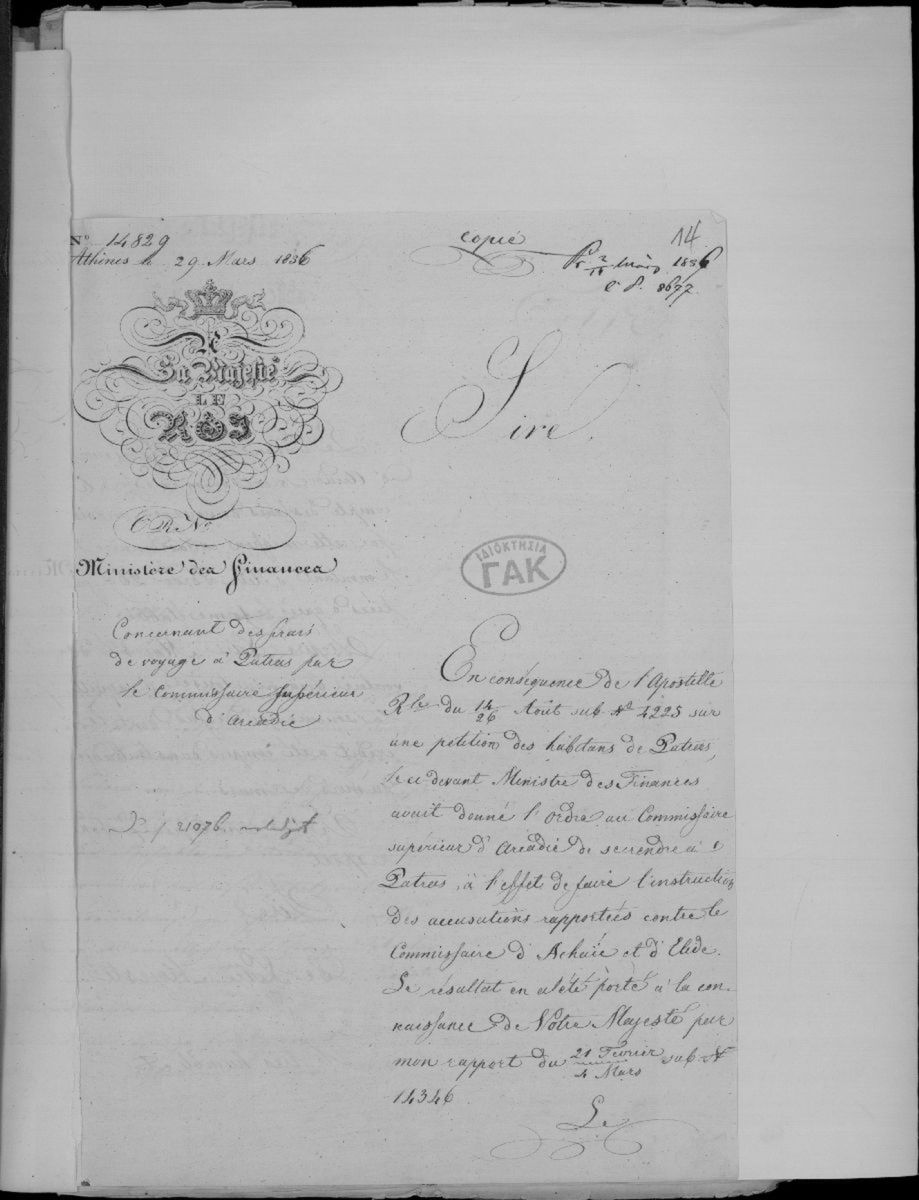 N° 14829
Athènes le 29 Mars 1836
copié
14
Pr 2/14 März 1836
E. P. 8677
A
Sa Majesté
LE
ROI
Sire,
C R No
Ministère des Finances
ΙΔΙΟΚΤΗΣΙΑ
ΓΑΚ
Concernant des frais
de voyage à Patras par
le Commissaire supérieur
d'Arcadie
En conséquence de l'Apostille
Rle du 14/26 Août sub No 4225 sur
une petition des habitans de Patras,
le ci devant Ministre des Finances
avait donné l'ordre au Commissaire
supérieur d'Arcadie de se rendre à
Patras, à l'effet de faire l'instruction
des accusations rapportées contre le
Commissaire d'Achaïe et d'Elide.
Le résultat en a été porté à la con-
naissance de Votre Majesté par
mon rapport du 21 Fevrier / 4 Mars sub No
14346
21076
Le